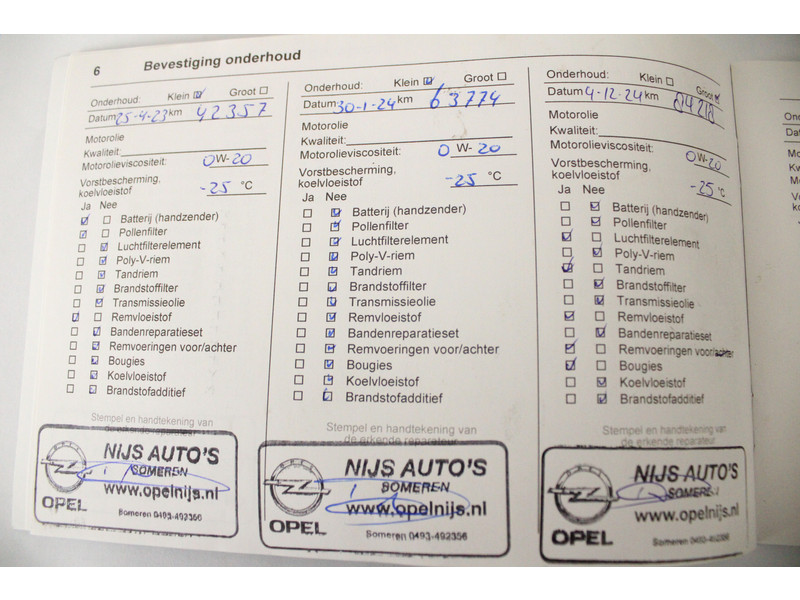 6 Bevestiging onderhoud
Onderhoud: Klein ☑ Groot ☐
Datum 25-4-23 km 42357
Motorolie
Kwaliteit:
Motorolieviscositeit: 0W-20
Vorstbescherming,
koelvloeistof -25 °C
Ja Nee
☑ ☐ Batterij (handzender)
☑ ☐ Pollenfilter
☐ ☑ Luchtfilterelement
☐ ☑ Poly-V-riem
☐ ☑ Tandriem
☐ ☑ Brandstoffilter
☐ ☑ Transmissieolie
☑ ☐ Remvloeistof
☐ ☑ Bandenreparatieset
☐ ☑ Remvoeringen voor/achter
☐ ☑ Bougies
☐ ☑ Koelvloeistof
☐ ☑ Brandstofadditief
Stempel en handtekening van
de erkende reparateur
NIJS AUTO'S
SOMEREN
www.opelnijs.nl
OPEL
Someren 0493-492356
Onderhoud: Klein ☑ Groot ☐
Datum 30-1-24 km 63774
Motorolie
Kwaliteit:
Motorolieviscositeit: 0W-20
Vorstbescherming,
koelvloeistof -25 °C
Ja Nee
☐ ☑ Batterij (handzender)
☐ ☑ Pollenfilter
☐ ☑ Luchtfilterelement
☐ ☑ Poly-V-riem
☐ ☑ Tandriem
☐ ☑ Brandstoffilter
☐ ☑ Transmissieolie
☐ ☑ Remvloeistof
☐ ☑ Bandenreparatieset
☐ ☑ Remvoeringen voor/achter
☐ ☑ Bougies
☐ ☑ Koelvloeistof
☐ ☑ Brandstofadditief
Stempel en handtekening van
de erkende reparateur
OPEL
NIJS AUTO'S
SOMEREN
www.opelnijs.nl
OPEL
Someren 0493-492356
Onderhoud: Klein ☐ Groot ☑
Datum 4-12-24 km
Motorolie
Kwaliteit:
Motorolieviscositeit: 0W-20
Vorstbescherming,
koelvloeistof -25 °C
Ja Nee
☐ ☑ Batterij (handzender)
☐ ☑ Pollenfilter
☑ ☐ Luchtfilterelement
☐ ☑ Poly-V-riem
☑ ☐ Tandriem
☐ ☑ Brandstoffilter
☐ ☑ Transmissieolie
☑ ☐ Remvloeistof
☐ ☑ Bandenreparatieset
☑ ☐ Remvoeringen voor/achter
☑ ☐ Bougies
☐ ☑ Koelvloeistof
☐ ☑ Brandstofadditief
Stempel en handtekening van
de erkende reparateur
NIJS AUTO'S
SOMEREN
www.opelnijs.nl
OPEL